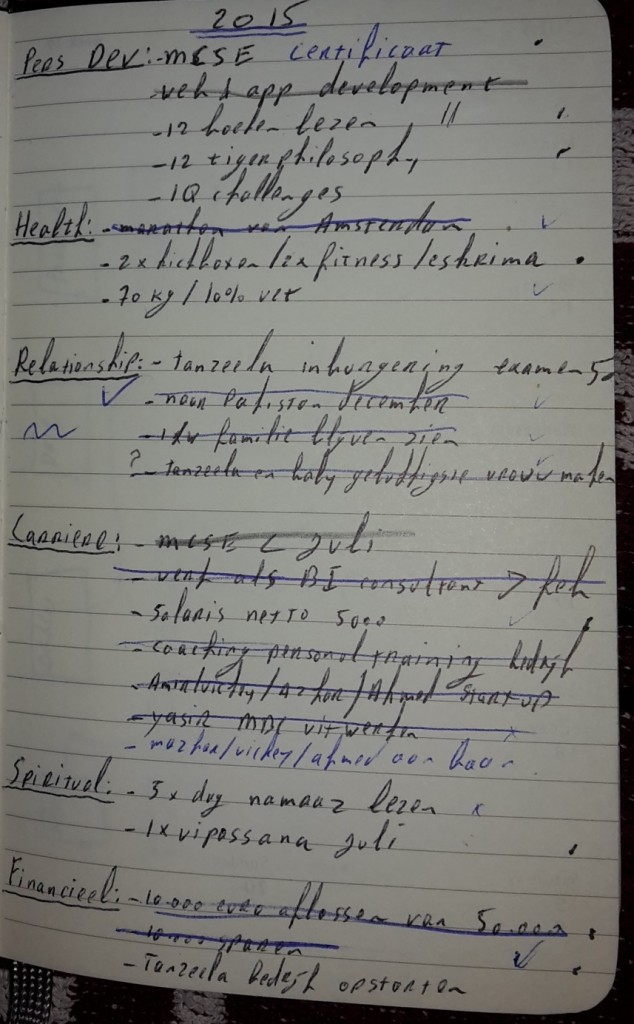 2015
Pers Dev: - MCSE certificaat
web & app development
- 12 boeken lezen
- 12 tiger philosophy
- IQ challenges
Health: - marathon van Amsterdam
- 2x kickboxen / 2x fitness / eskrima
- 70 kg / 10% vet
Relationship: - tanzeela inburgering examen
- naar Pakistan december
- familie blyven zien
? - tanzeela en baby gelukkigste vrouw maken
Carriere: - MCSE < Juli
- werk als BI consultant > feb
- Salaris netto 5000
- coaching personal training bedrijf
- Azhar / Ahmed startup
- yasir uitwerken
- mazhar / vickey / ahmed aan baan
Spiritual: - 5x dag namaaz lezen x
- 1x vipassana juli
Financieel: - 10.000 euro aflossen van 50.000
- 10.000 sparen
- Tanzeela bedrijf opstarten